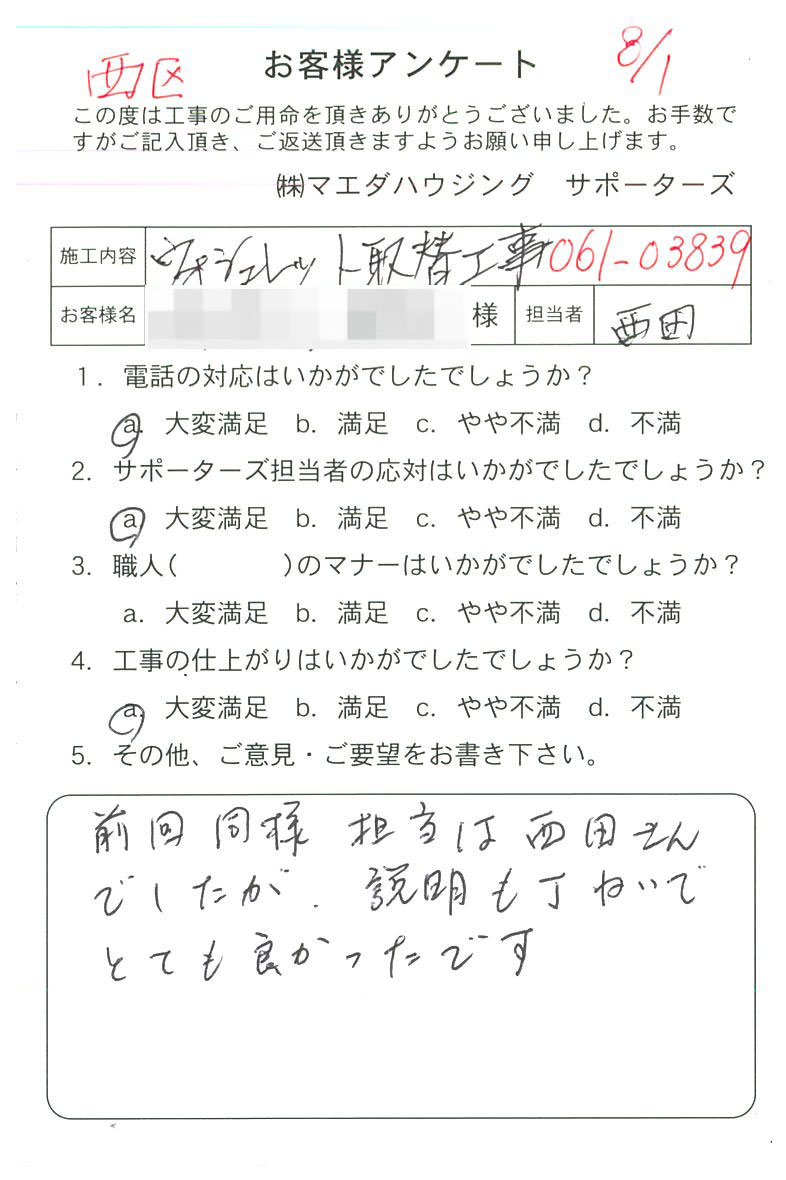 西区 お客様アンケート 8/1
この度は工事のご用命を頂きありがとうございました。お手数で
すがご記入頂き、ご返送頂きますようお願い申し上げます。
㈱マエダハウジング サポーターズ
施工内容 ウォシュレット取替工事 061-03839
お客様名 様 担当者 西田
1. 電話の対応はいかがでしたでしょうか?
a. 大変満足 b. 満足 c. やや不満 d. 不満
2. サポーターズ担当者の応対はいかがでしたでしょうか?
a. 大変満足 b. 満足 c. やや不満 d. 不満
3. 職人( )のマナーはいかがでしたでしょうか?
a. 大変満足 b. 満足 c. やや不満 d. 不満
4. 工事の仕上がりはいかがでしたでしょうか?
a. 大変満足 b. 満足 c. やや不満 d. 不満
5. その他、ご意見・ご要望をお書き下さい。
前回同様 担当は西田さん
でしたが、説明も丁ねいで
とても良かったです